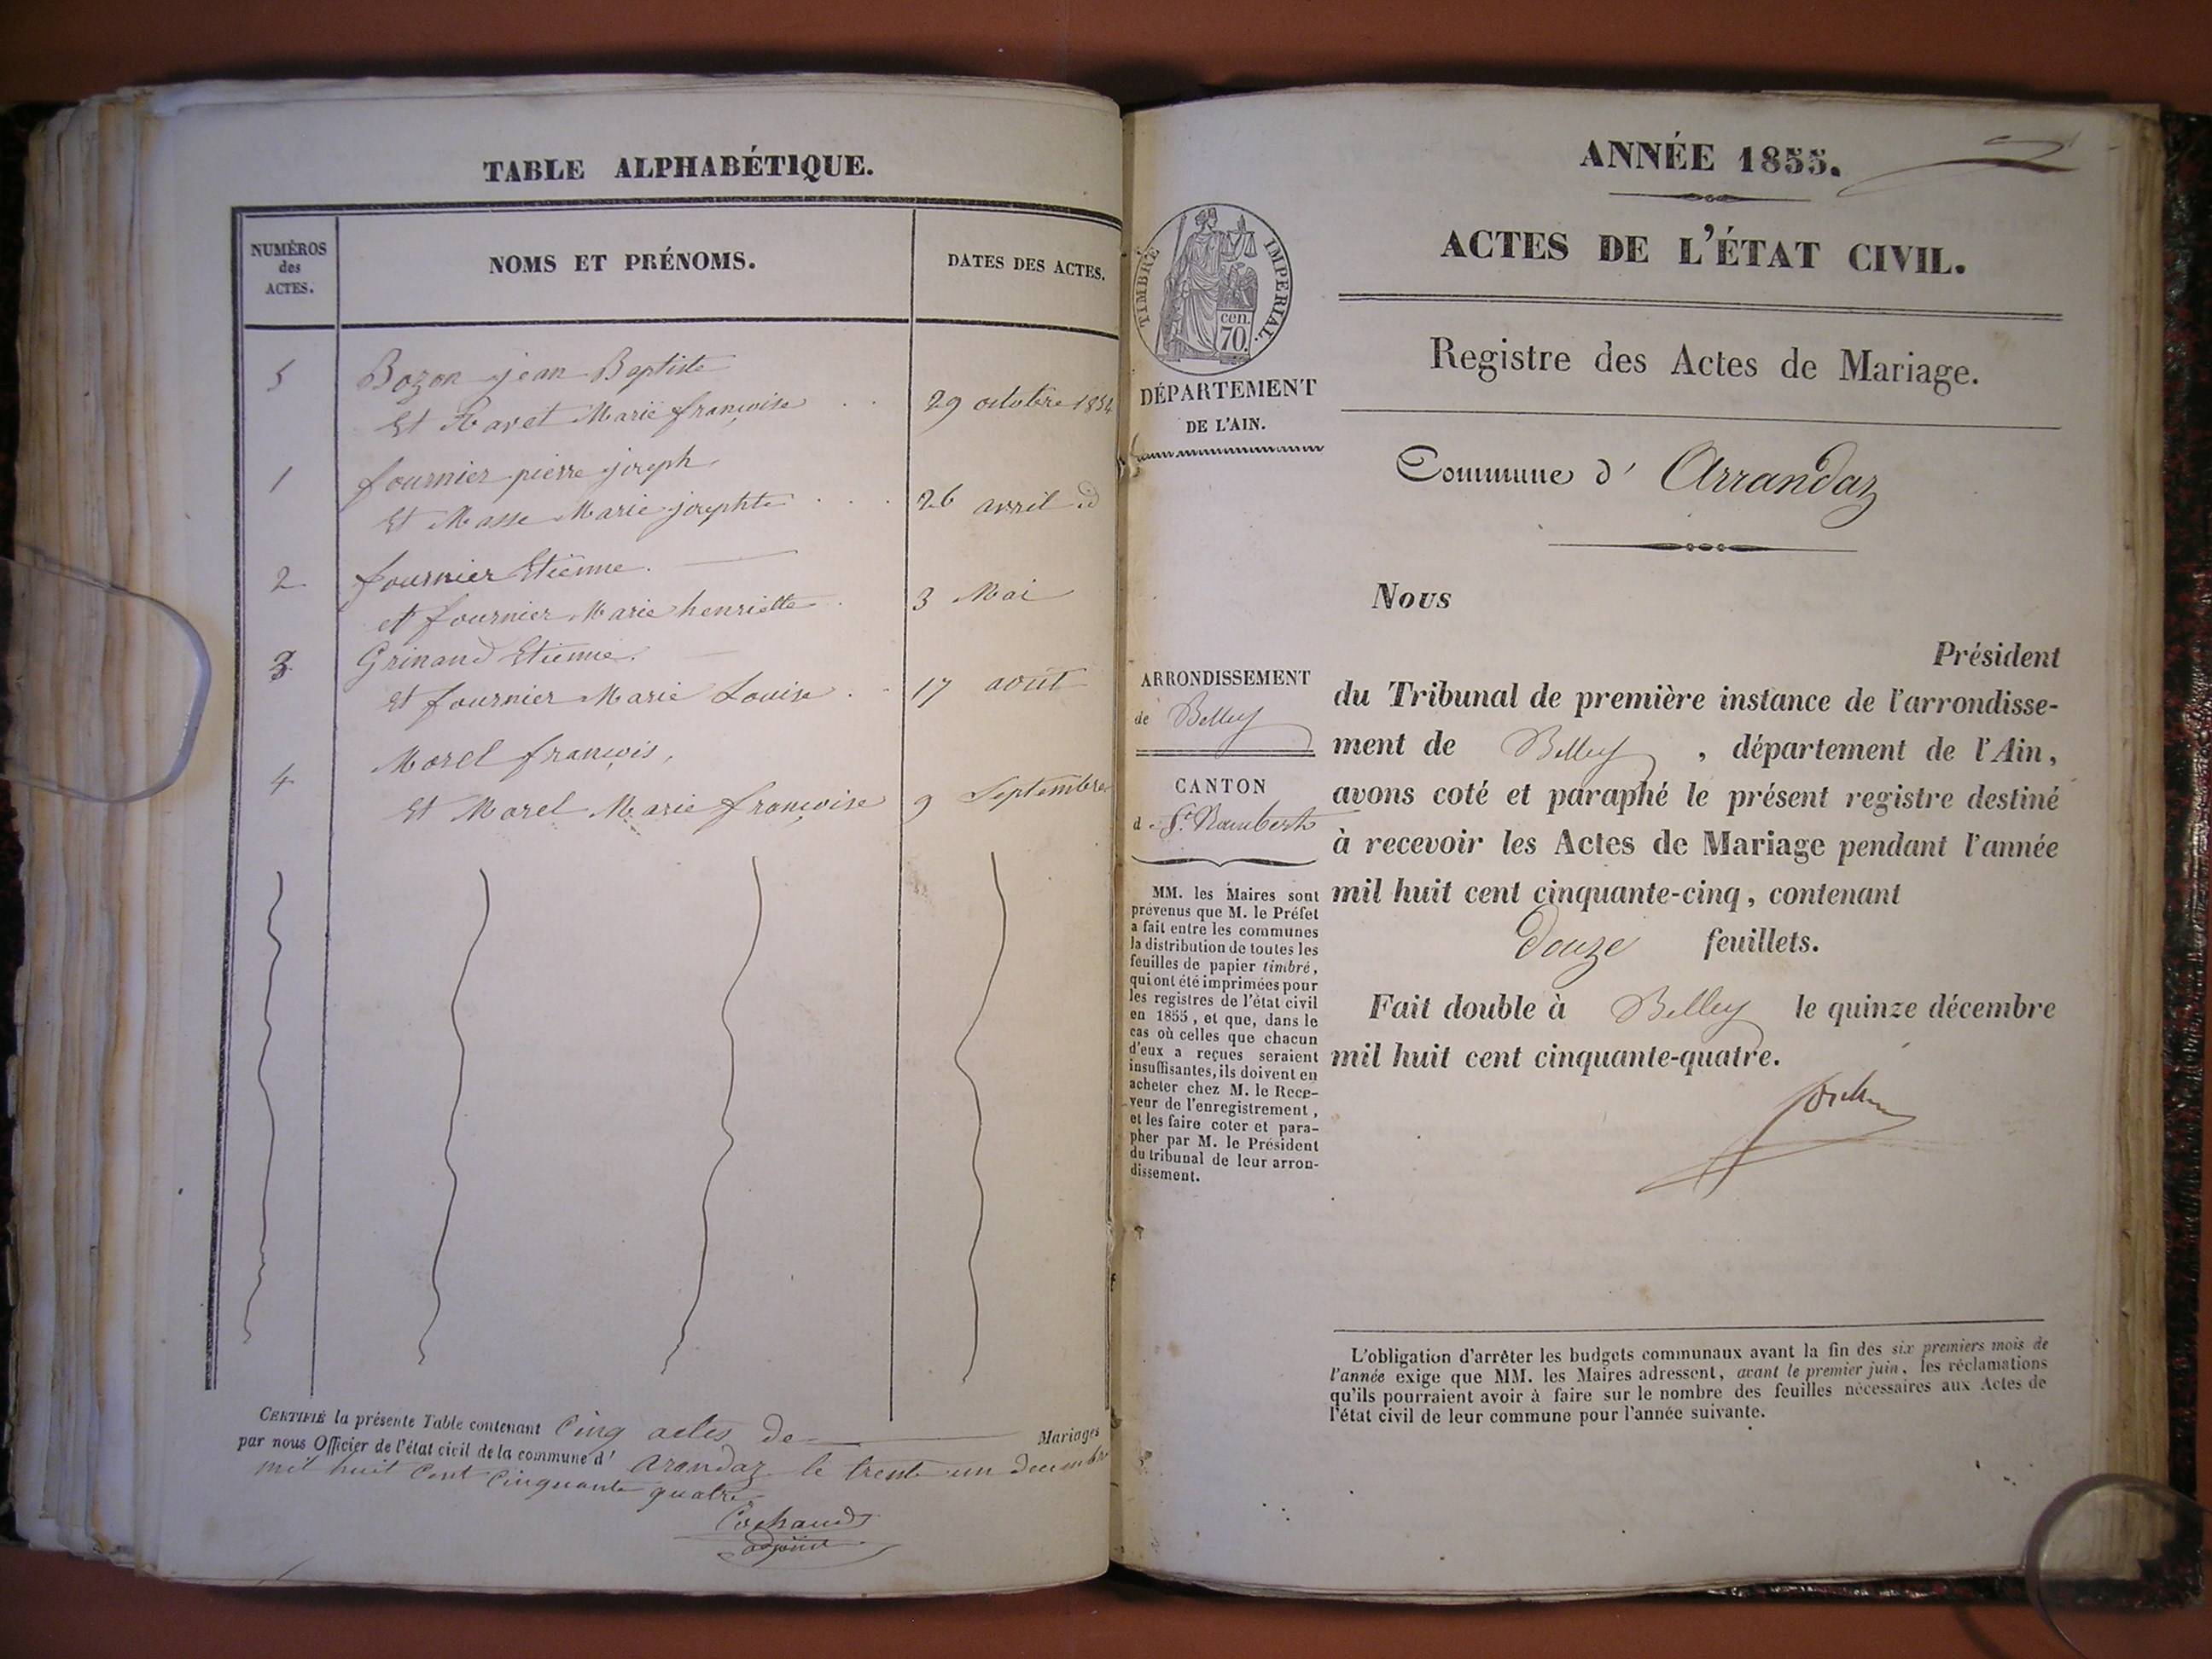 TABLE ALPHABÉTIQUE.
NUMÉROS
des
ACTES.
NOMS ET PRÉNOMS.
DATES DES ACTES.
5 Bozon jean Baptiste
Et Ravet Marie françoise . . 29 octobre 1854
1 fournier pierre joseph
Et Masse Marie josephte . . . 26 avril id
2 fournier Etienne.
et fournier Marie henriette . 3 Mai
3 Grinand Etienne.
Et fournier Marie Louise . . 17 août
4 Morel françois,
Et Morel Marie françoise 9 Septembre
CERTIFIÉ la présente Table contenant Cinq actes de Mariages
par nous Officier de l'état civil de la commune d' arandaz le trente un decembre
mil huit Cent Cinquante quatre
Cochaud
adjoint
ANNÉE 1855.
ACTES DE L'ÉTAT CIVIL.
Registre des Actes de Mariage.
Commune d' Arrandaz
TIMBRE IMPERIAL.
cen.
70.
DÉPARTEMENT
DE L'AIN.
ARRONDISSEMENT
de Belley
CANTON
d. St. Rambert
MM. les Maires sont
prévenus que M. le Préfet
a fait entre les communes
la distribution de toutes les
feuilles de papier timbré,
qui ont été imprimées pour
les registres de l'état civil
en 1855, et que, dans le
cas où celles que chacun
d'eux a reçues seraient
insuffisantes, ils doivent en
acheter chez M. le Rece-
veur de l'enregistrement,
et les faire coter et para-
pher par M. le Président
du tribunal de leur arron-
dissement.
Nous
Président
du Tribunal de première instance de l'arrondisse-
ment de Belley, département de l'Ain,
avons coté et paraphé le présent registre destiné
à recevoir les Actes de Mariage pendant l'année
mil huit cent cinquante-cinq, contenant
Douze feuillets.
Fait double à Belley le quinze décembre
mil huit cent cinquante-quatre.
L'obligation d'arrêter les budgets communaux avant la fin des six premiers mois de
l'année exige que MM. les Maires adressent, avant le premier juin, les réclamations
qu'ils pourraient avoir à faire sur le nombre des feuilles nécessaires aux Actes de
l'état civil de leur commune pour l'année suivante.